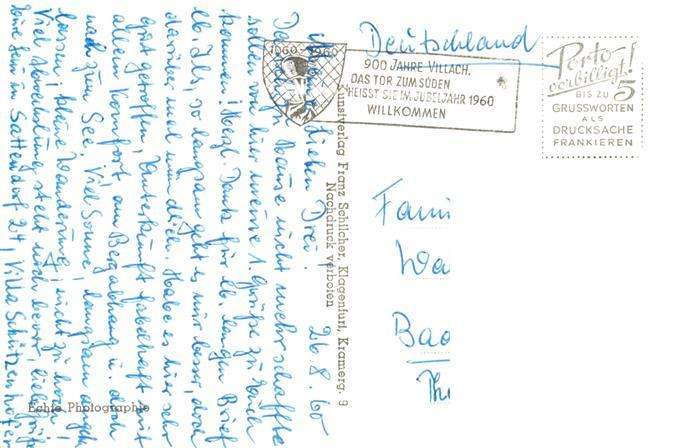 Deutschland
1060 1960
900 JAHRE VILLACH,
DAS TOR ZUM SÜDEN
HEISST SIE IM JUBELJAHR 1960
WILLKOMMEN
Porto
verbilligt!
BIS ZU 5
GRUSSWORTEN
ALS
DRUCKSACHE
FRANKIEREN
Fami
Wa
Bad
Kunstverlag Franz Schilcher, Klagenfurt, Kramerg. 9
Nachdruck verboten
26.8.60
lieben Drei!
zu Hause nicht mehr schafften
sollen von hier unsere 1. Grüße zu Euch
kommen! Herzl. Dank für lb. langen Brief
so langsam geht es mir besser, doch
darüber mal mündl. Habe es hier sehr
gut getroffen, Unterkunft fabelhaft mit
allem Komfort am Bergabhang u. doch
nah zum See, Viel Sonne, langsam
lassen, kleine Wanderung, nicht zu hoch!
Viel Abwechslung steht noch bevor, liebe
in Sattendorf 24, Villa Schützenhöfer
Echte Photographie